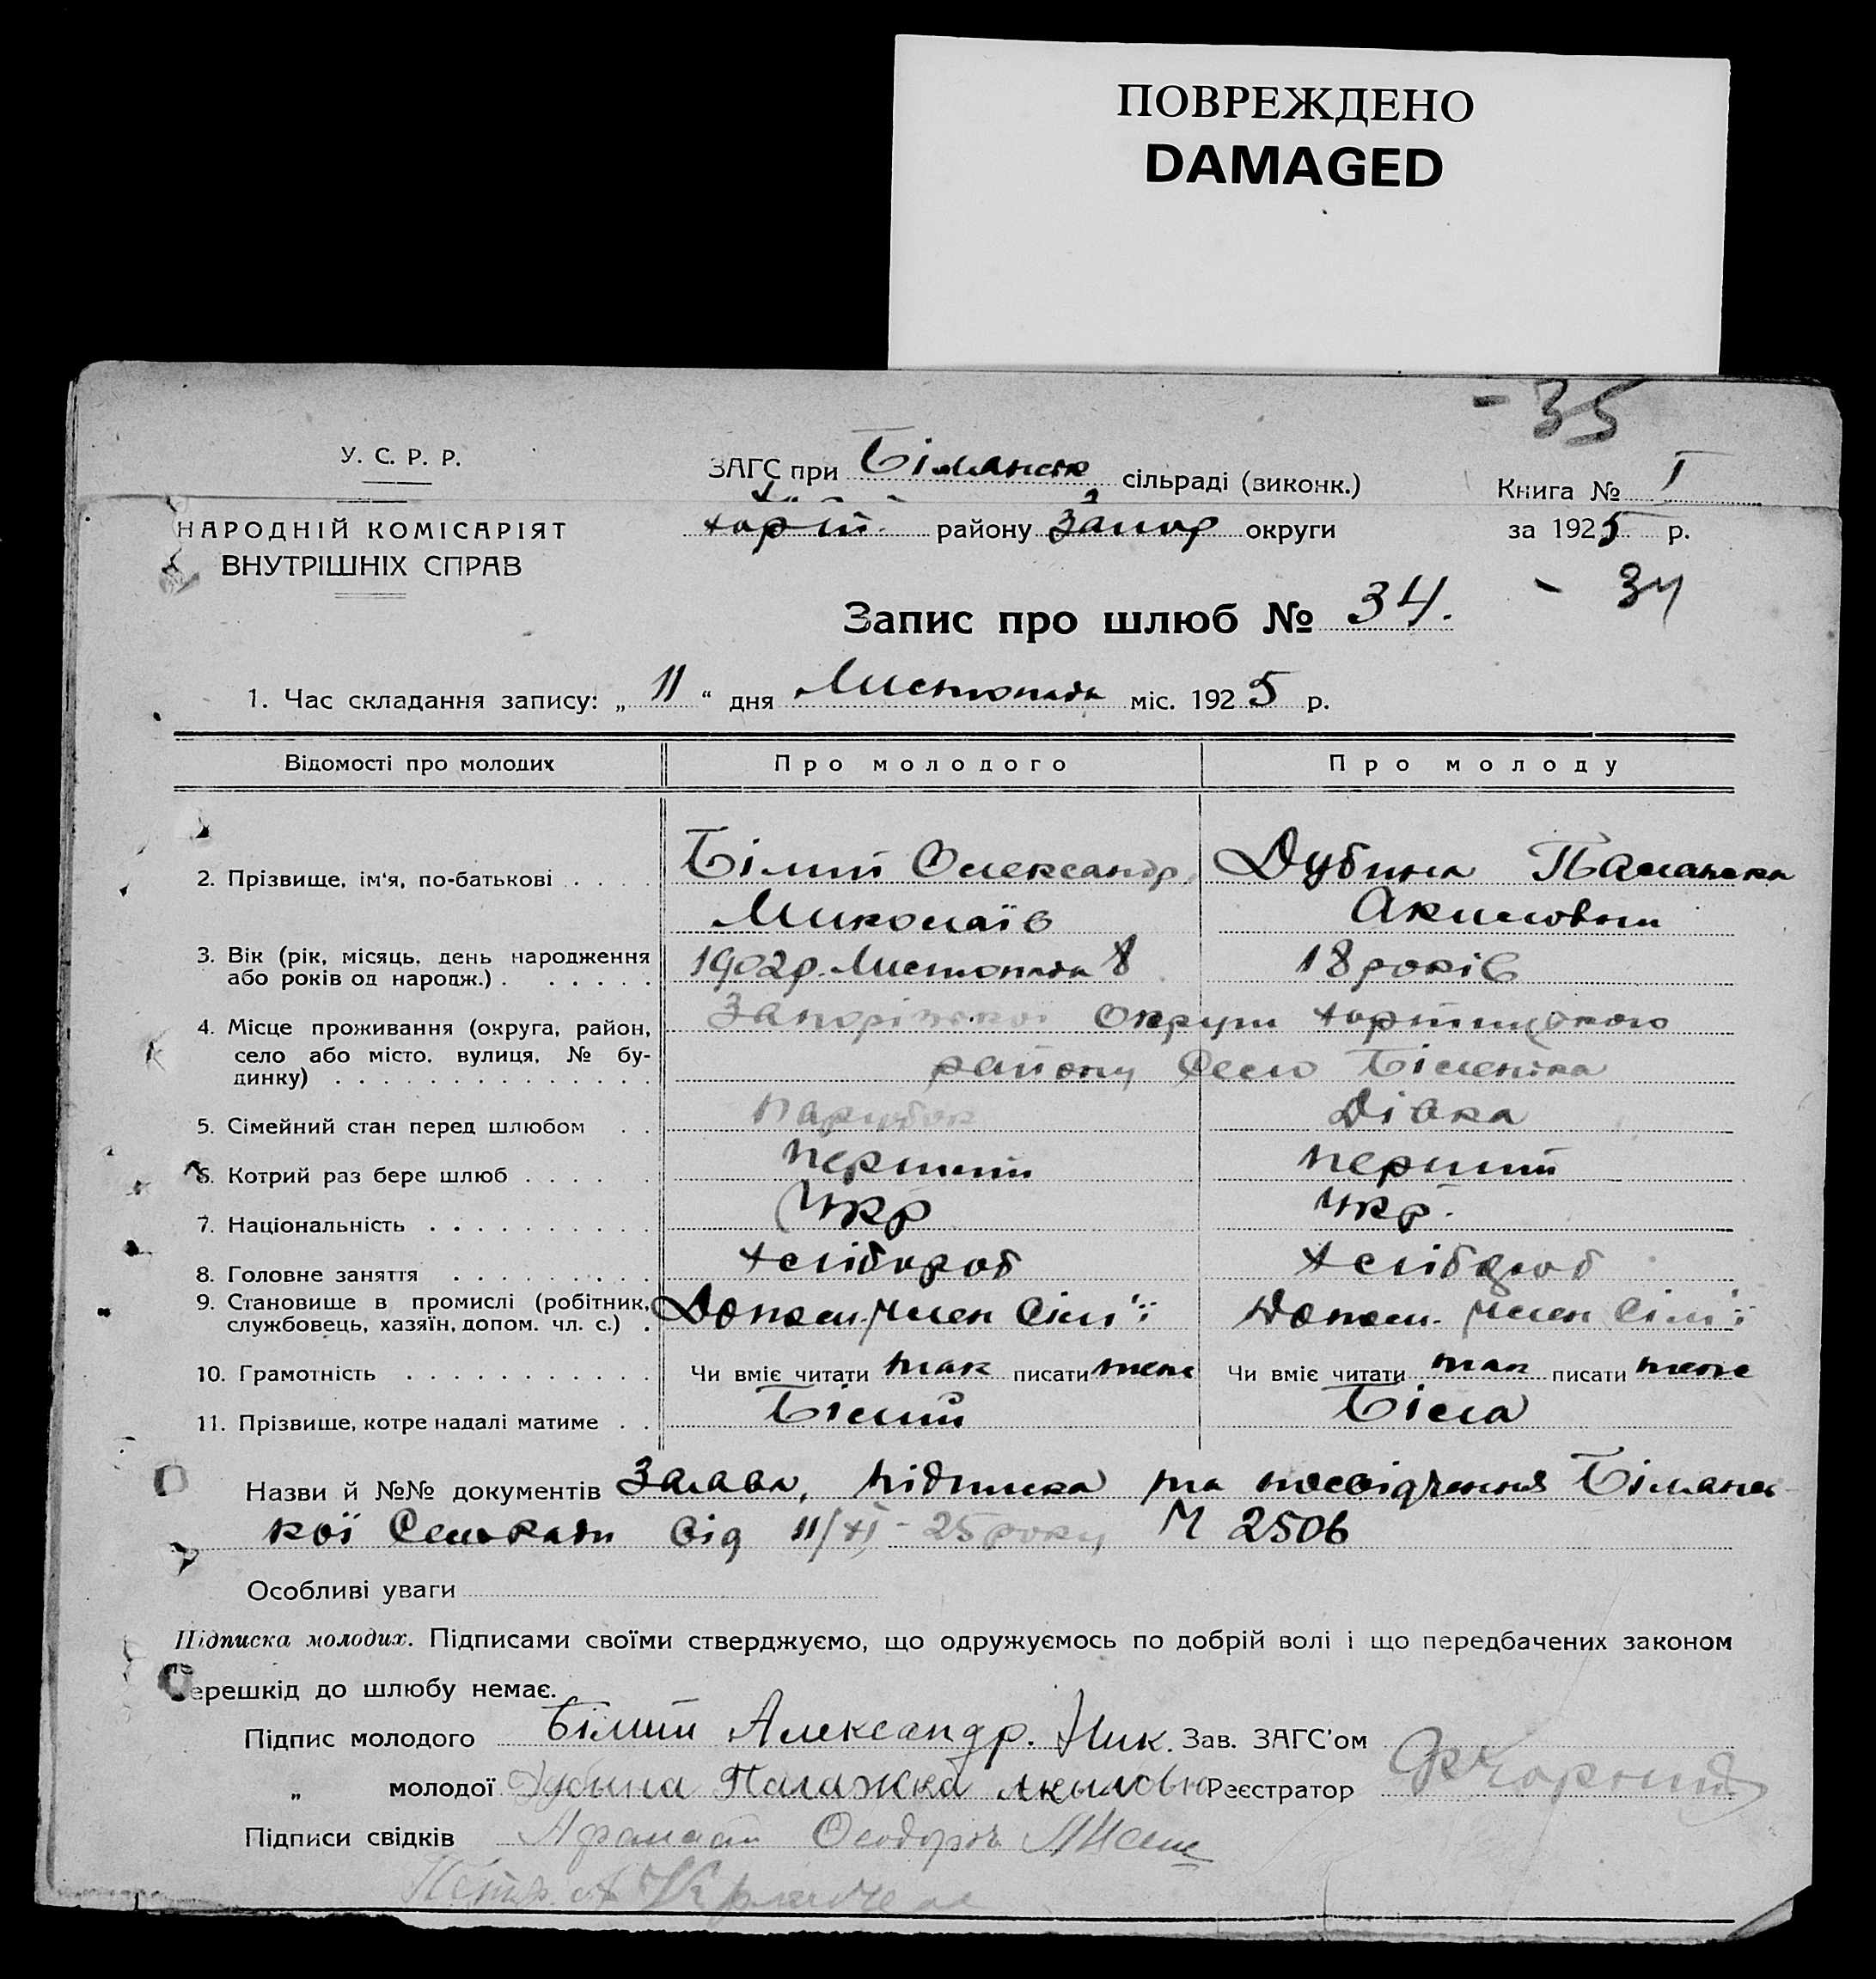 ПОВРЕЖДЕНО
DAMAGED
- 35
У. С. Р. Р.
НАРОДНІЙ КОМІСАРІЯТ
ВНУТРІШНІХ СПРАВ
ЗАГС при Біманськ сільраді (виконк.)
Хорт. району Запор округи
Книга № I
за 1925 р.
- 34
Запис про шлюб № 34.
1. Час складання запису: „ 11 “ дня Листопада міс. 1925 р.
Відомості про молодих Про молодого Про молоду
2. Прізвище, ім‘я, по-батькові . . . . Білий Олександр. Дубина Палажка
Миколаїв Акимовни
3. Вік (рік, місяць, день народження 1902р. Листопада 8 18 років
або років од народж.) . . . . . .
4. Місце проживання (округа, район, Запорізької Округи Хортицького
село або місто, вулиця, № бу-
динку) . . . . . . . . . . . . . району Село Біленька
5. Сімейний стан перед шлюбом . . парубок Дівка
6. Котрий раз бере шлюб . . . . . перший перший
7. Національність . . . . . . . . . Укр Укр.
8. Головне заняття . . . . . . . . . Хлібороб Хлібороб
9. Становище в промислі (робітник, Допом. член сім'ї Допом. член сім'ї
службовець, хазяїн, допом. чл. с.) .
10. Грамотність . . . . . . . . . . . Чи вміє читати так писати теж Чи вміє читати так писати теж
11. Прізвище, котре надалі матиме . . Білий Біла
Назви й №№ документів Заява, підписка та посвідчення Білансь-
кої Сельради від 11/XI - 25 року № 2506
Особливі уваги
Підписка молодих. Підписами своїми стверджуємо, що одружуємось по добрій волі і що передбачених законом
перешкід до шлюбу немає.
Підпис молодого Білий Александр. Ник. Зав. ЗАГС'ом
„ молодої Дубина Палажка Акымовн Реєстратор Чорний
Підписи свідків